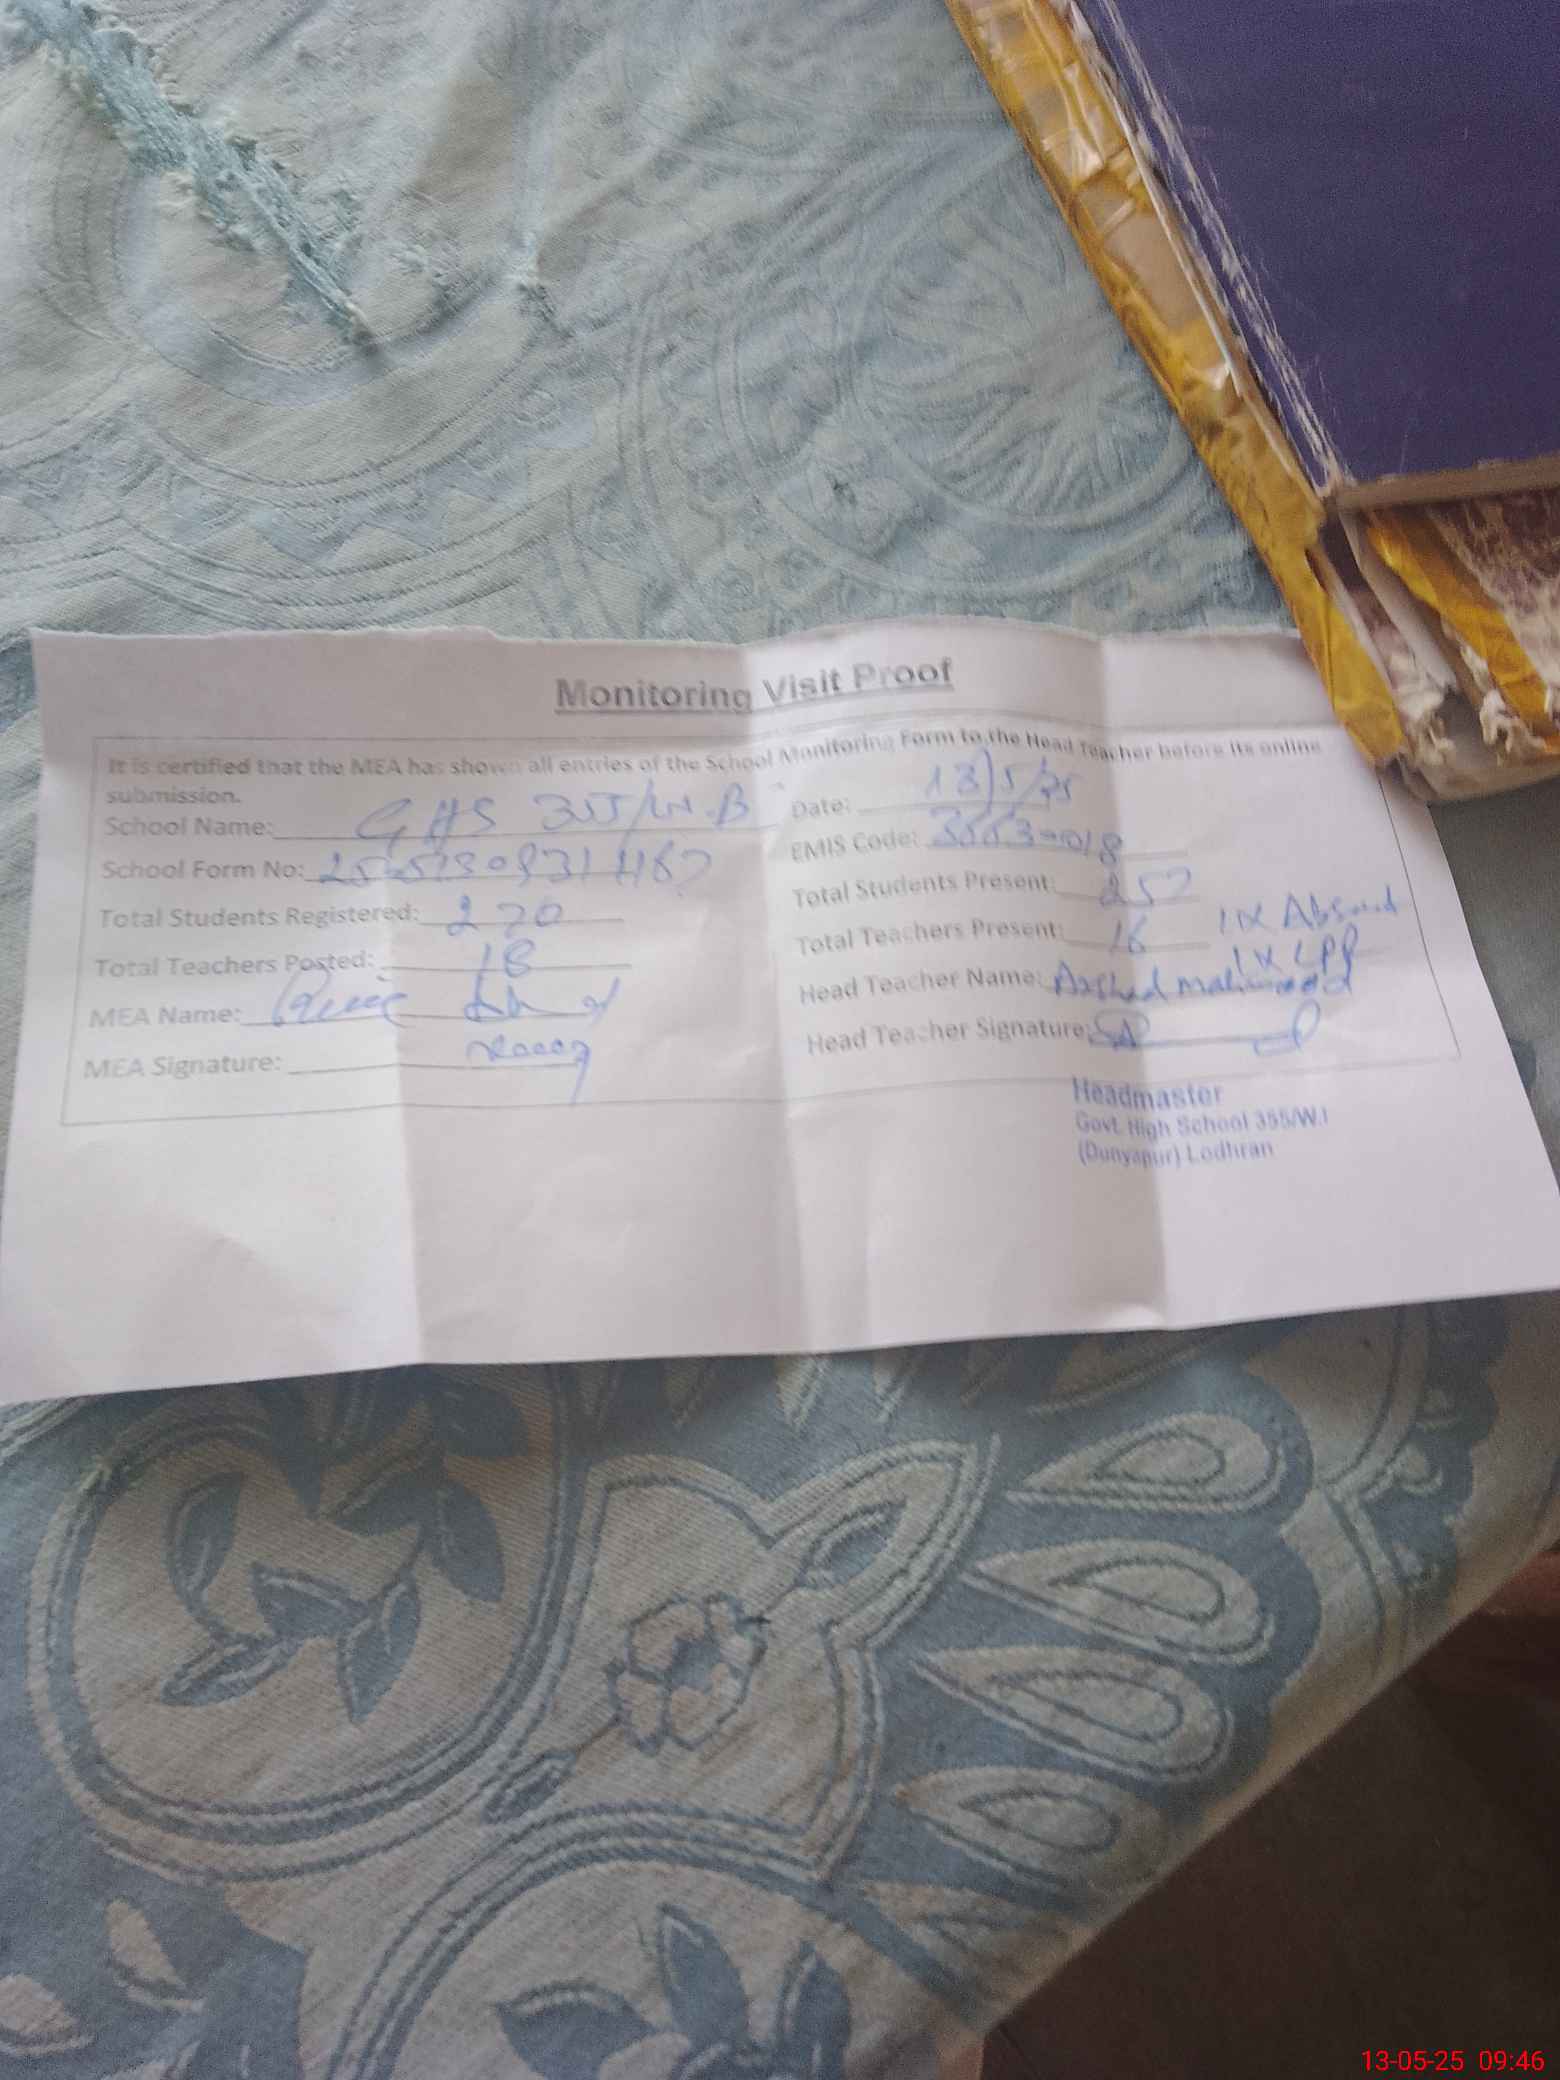 Monitoring Visit Proof
It is certified that the MEA has shown all entries of the School Monitoring Form to the Head Teacher before its online
submission.
School Name: GHS 355/W.B
Date: 13/5/25
School Form No:
EMIS Code:
Total Students Registered: 270
Total Students Present: 257
Total Teachers Posted: 18
Total Teachers Present: 16 1x Absent
MEA Name:
Head Teacher Name: Arshad mahmood
MEA Signature:
Head Teacher Signature:
Headmaster
Govt. High School 355/W.
(Dunyapur) Lodhran
13-05-25 09:46